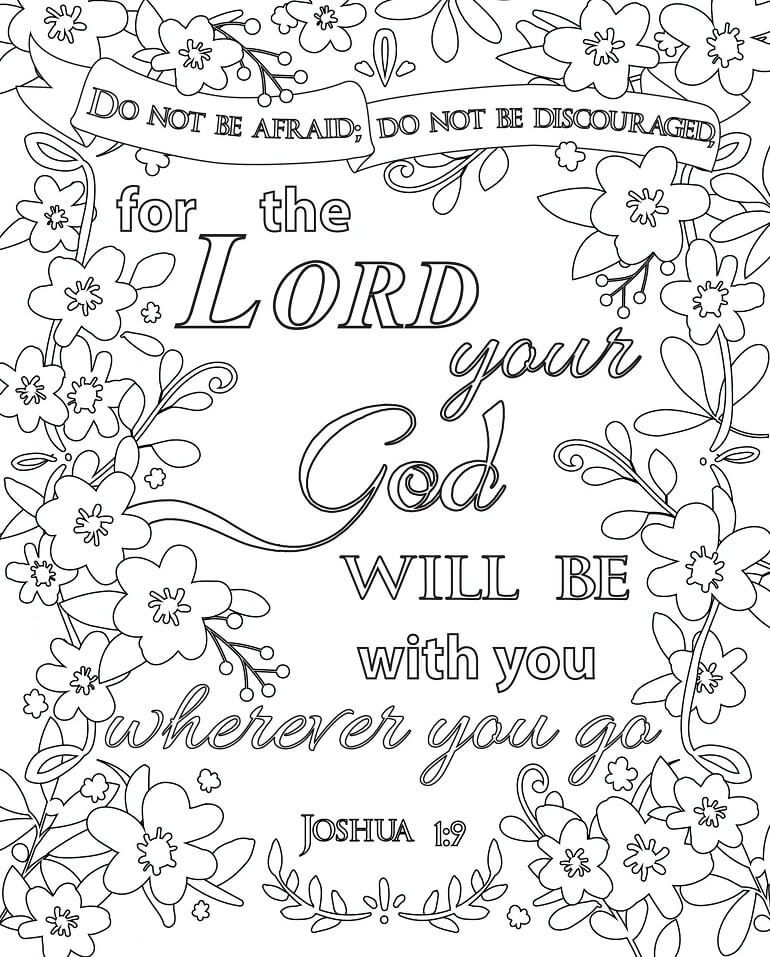 DO NOT BE AFRAID; DO NOT BE DISCOURAGED,
for the
LORD
your
God
WILL BE
with you
wherever you go
JOSHUA 1:9